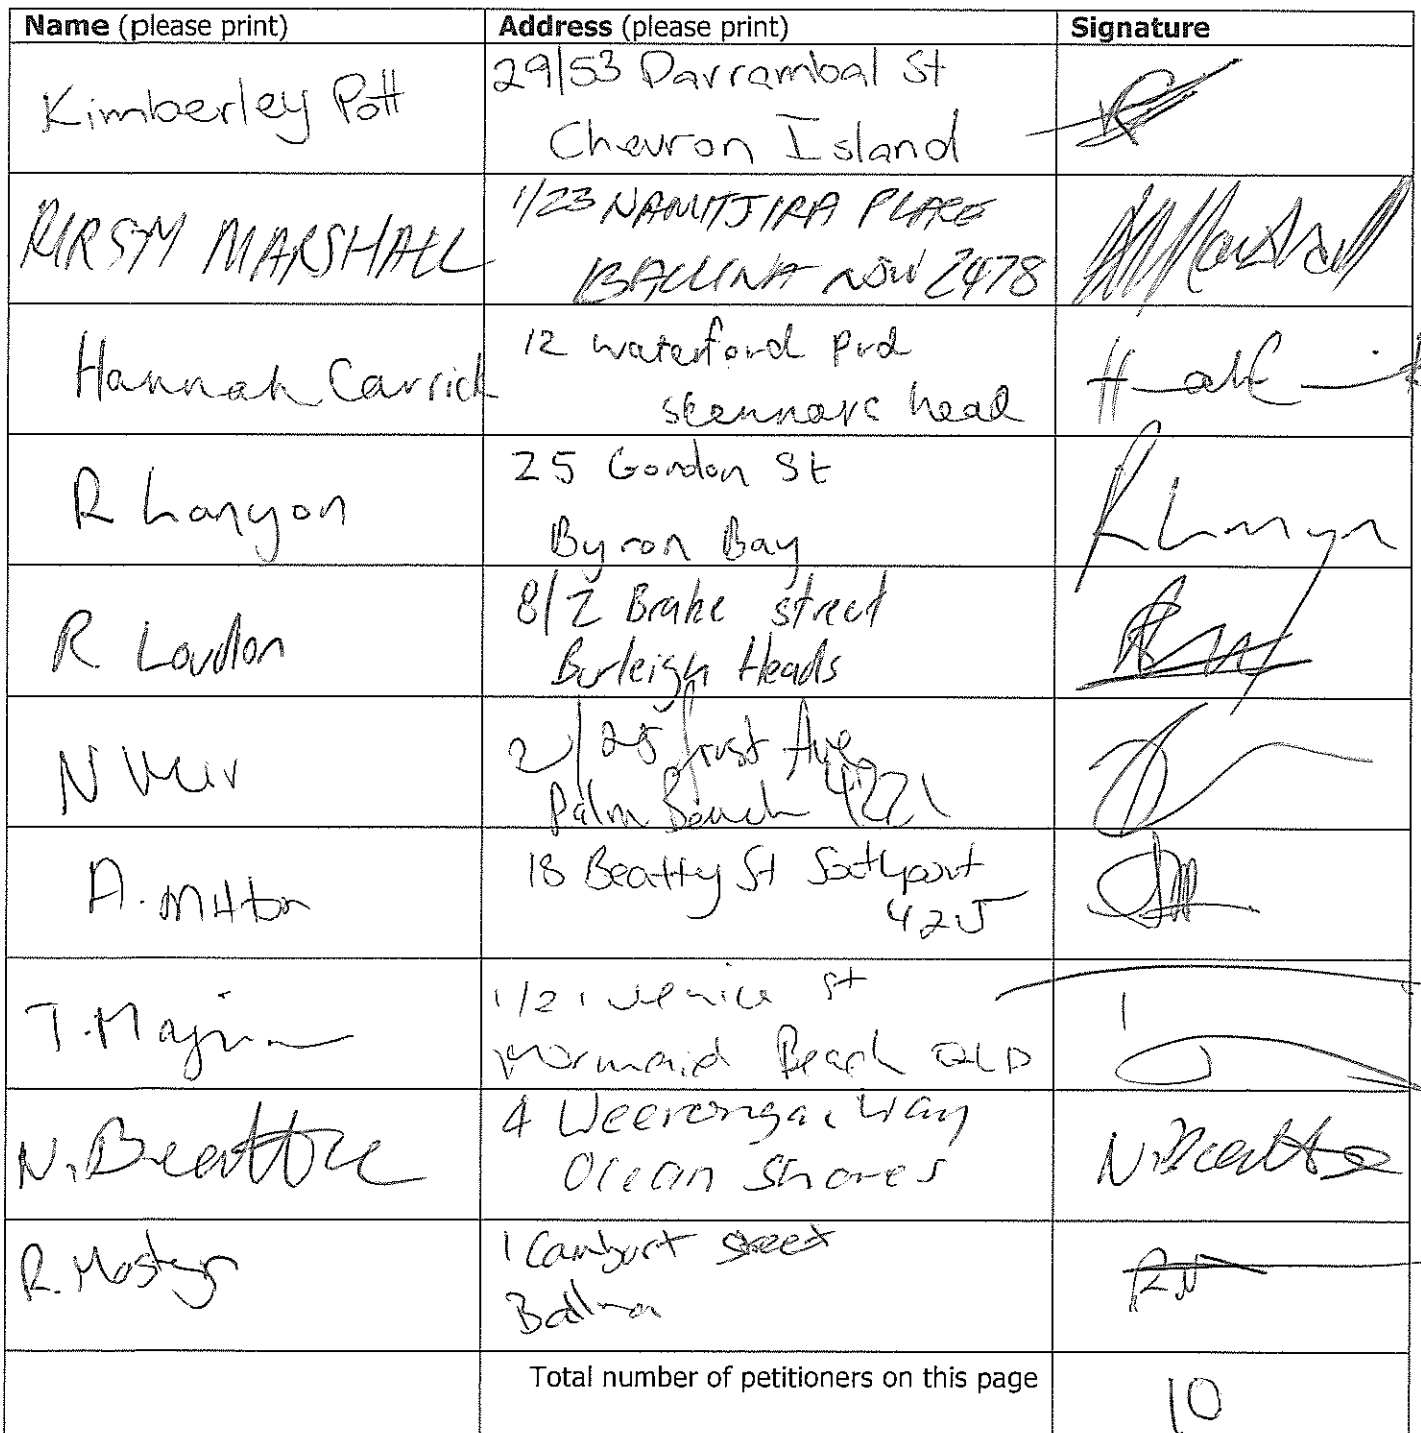 Name (please print) Address (please print) Signature
Kimberley Pott 29/53 Darrambal St
Chevron Island
MARSHALL 1/23 NAMITJIRA PLACE
BALLINA NSW 2478
Hannah Carrick 12 waterford prd
skennars head
R Lanyon 25 Gordon St
Byron Bay
R Lanyon
R Loudon 8/2 Brake street
Burleigh Heads
N Weir 2/25 Ave
Palm Beach 4221
A. Mitton 18 Beatty St Southport
4215
T. 1/21 Venice st
Mermaid Beach QLD
N. Beattie 4 Weeronga Way
Ocean Shores
N. Beattie
R. Mostyn 1 street
Ballina
Total number of petitioners on this page 10